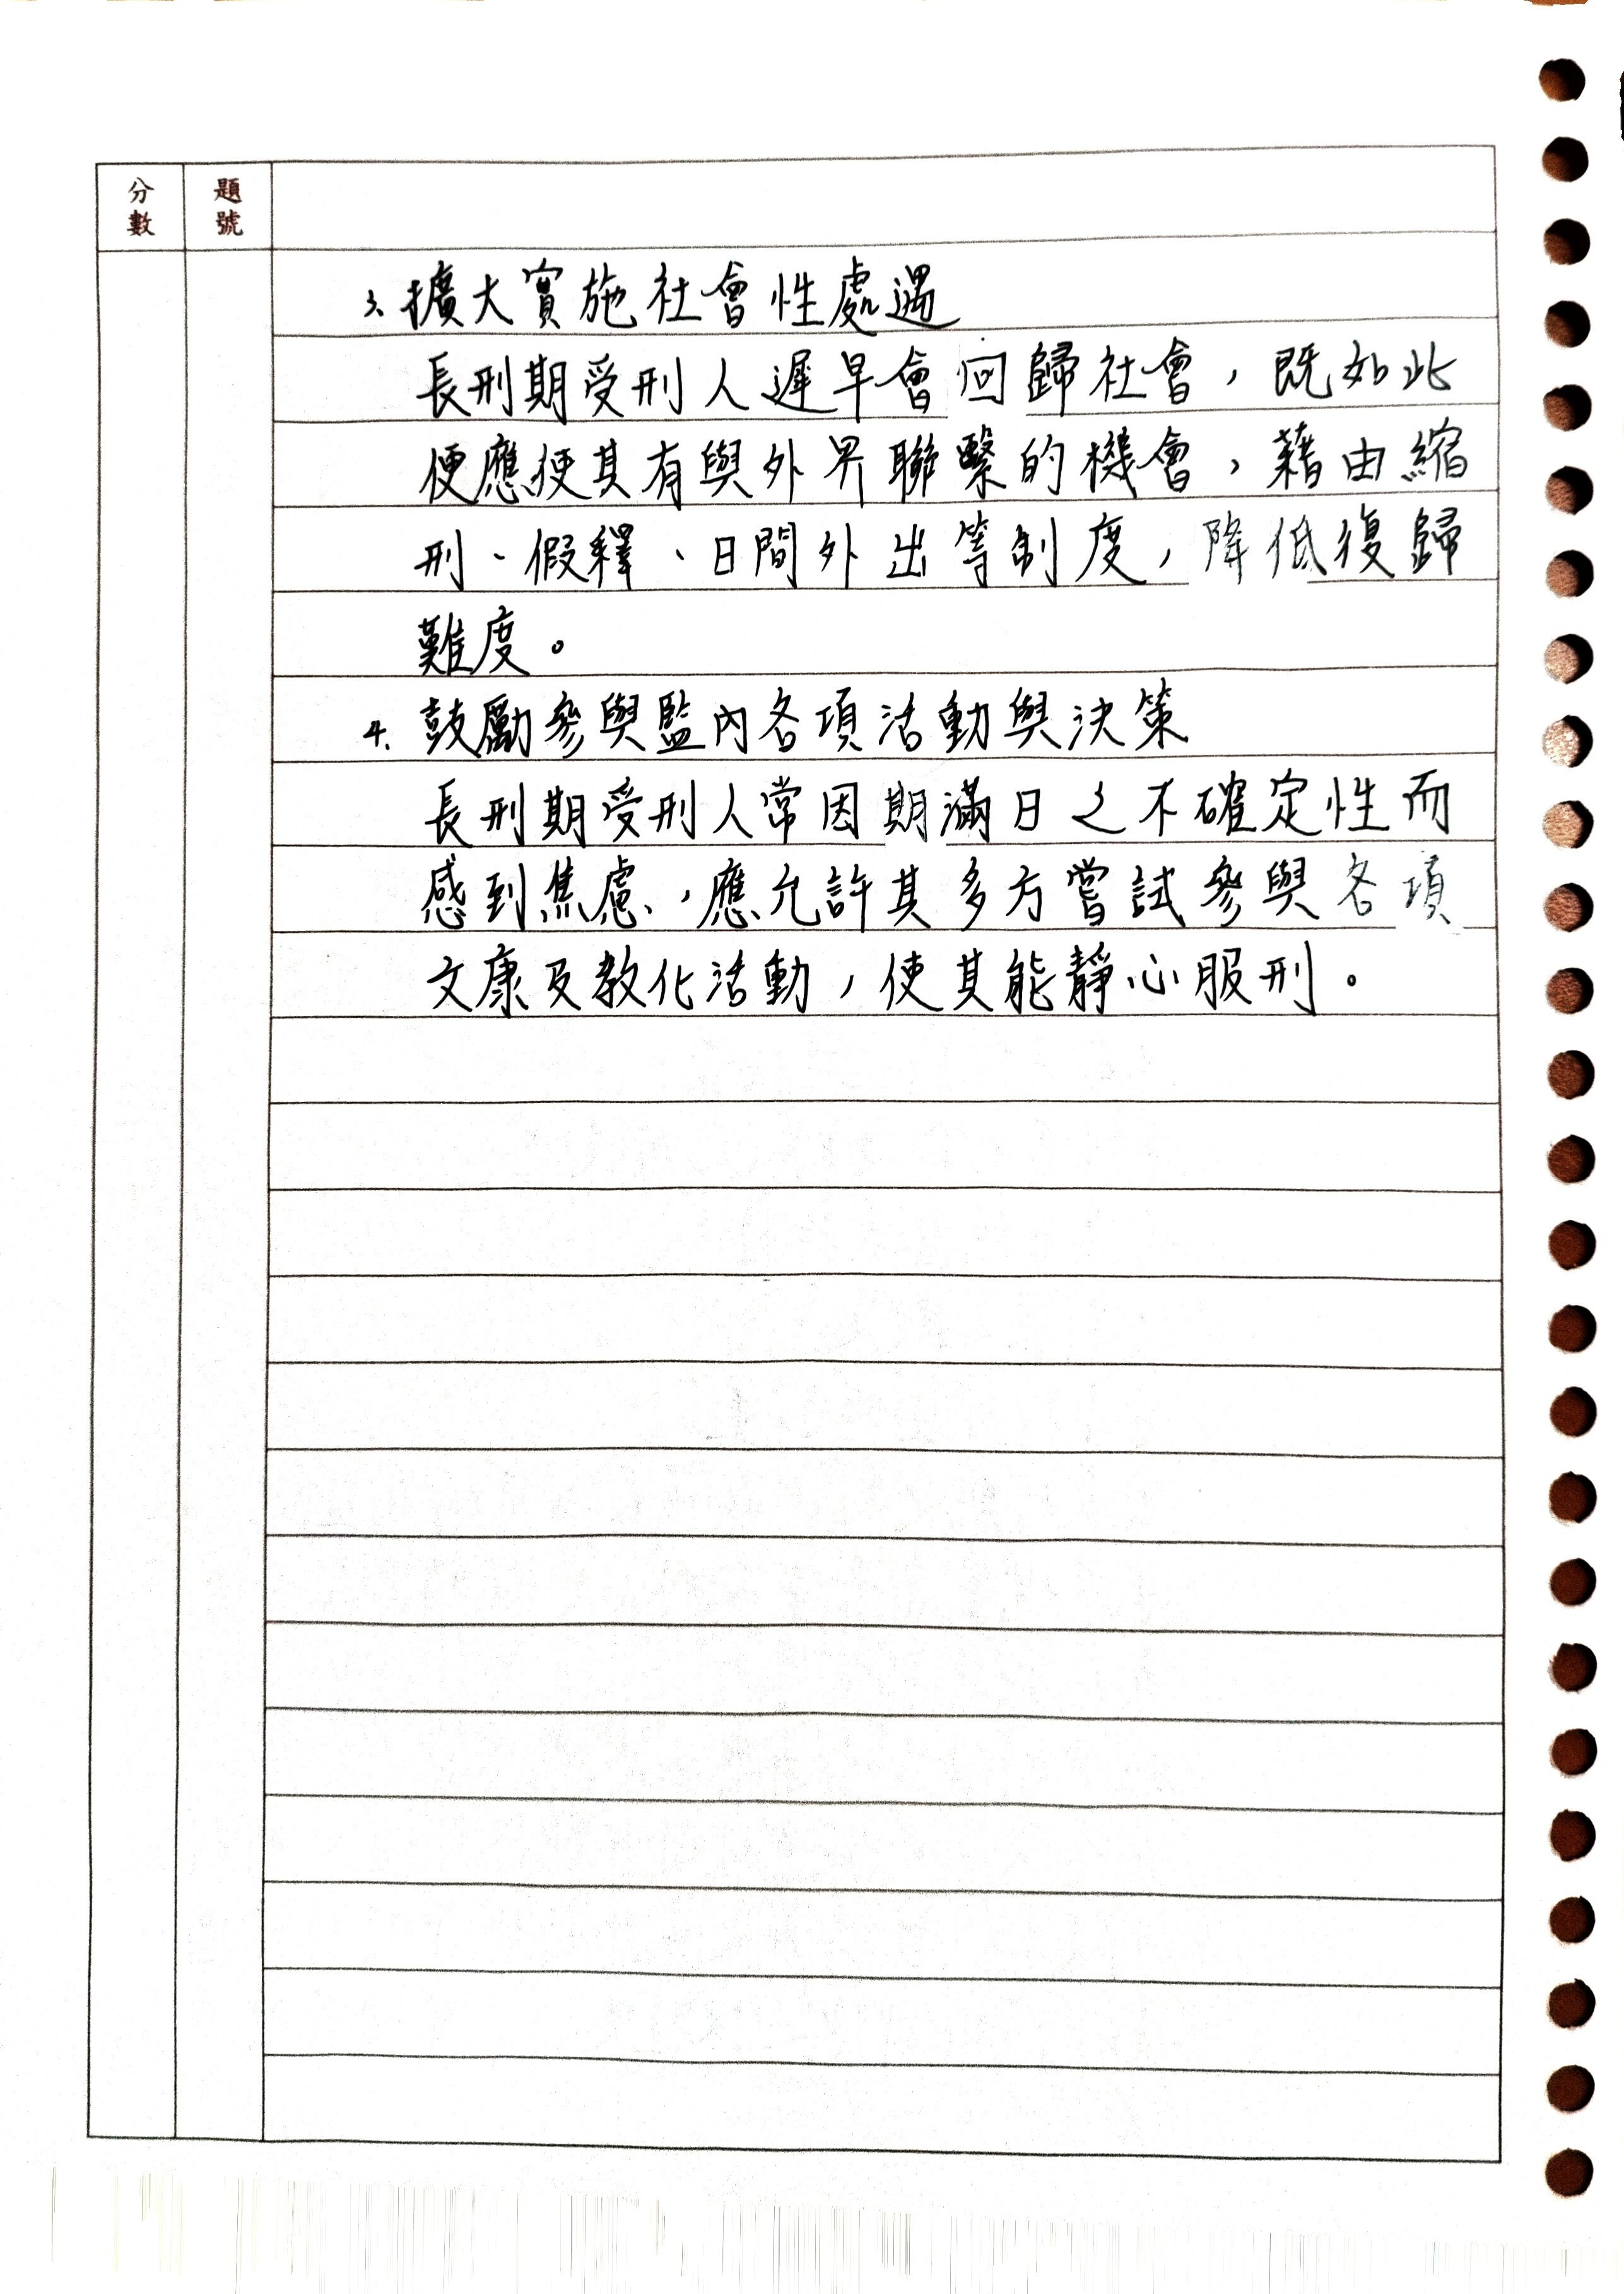 分數 題號
3、擴大實施社會性處遇
長刑期受刑人遲早會回歸社會，既如此
便應使其有與外界聯繫的機會，藉由縮
刑、假釋、日間外出等制度，降低復歸
難度。
4、鼓勵參與監內各項活動與決策
長刑期受刑人常因期滿日之不確定性而
感到焦慮，應允許其多方嘗試參與各項
文康及教化活動，使其能靜心服刑。